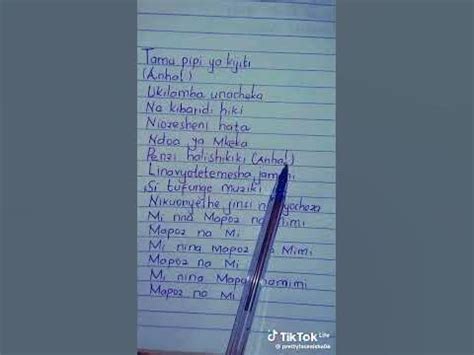 Tamu pipi ya kijiti
(Anhaa)
Ukilamba unacheka
Na kibaridi hiki
Niozesheni hata
Ndoa ya Mkeka
Penzi halishikiki (Anhaa)
Linavyoletemesha jamani
Si tufunge muziki
Nikuonyeshe jinsi
Mi nna Mapoz na mimi
Mapoz na Mi
Mi nina Mapoz na Mimi
Mapoz na Mi
Mi nina Mapoz namimi
Mapoz na Mi
TikTok Lite